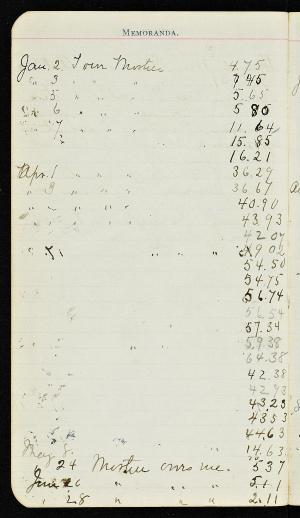 MEMORANDA.
Jan. 2 I owe Mostien 4 75
" 3 " " " 7 45
" 5 " " 5.65
" 6 " " 5 80
" 7 " " 11.64
" " 15.85
16.21
Apr. 1 " " " 36.29
" 3 " " " 36 67
" " " 40.90
" " " 43.93
" " " 42 07
" " 9 02
54.50
54.75
56.74
56.54
57.34
" " 59 38
64.38
42.38
42 93
43.23
43 53
44.63
May 8. " " 14.63
24 Mostien owes me. 5 37
June 26 " " " 5.11
" 28 " " " 2.11